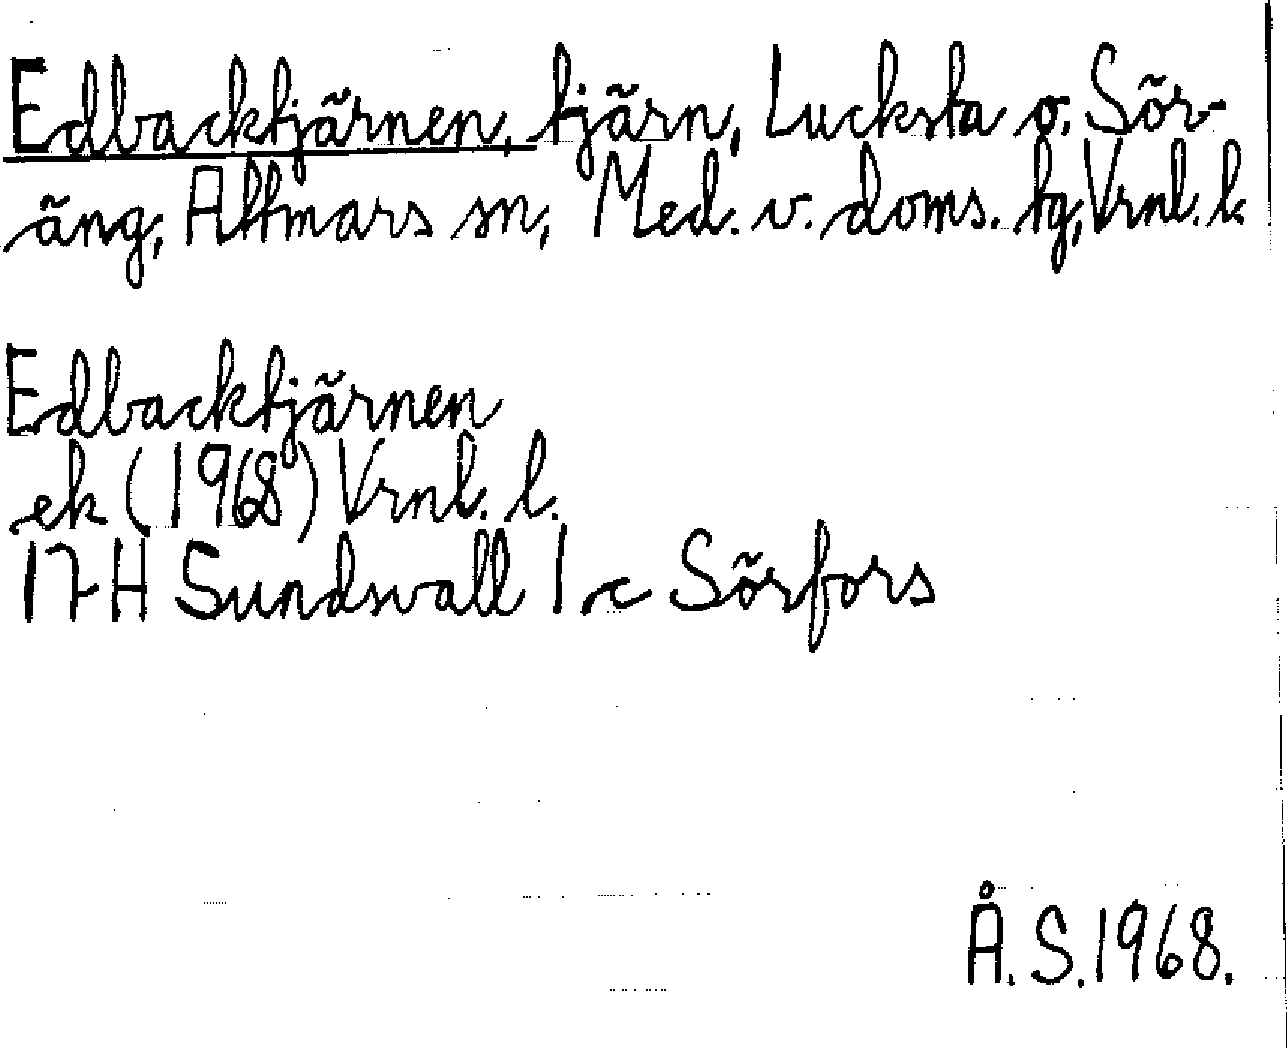 Edbacktjärnen, tjärn, Lucksta o. Sör-
äng, Attmars sn, Med. v. doms. tg, Vrnl. l.
Edbacktjärnen
ek (1968) Vrnl. l.
17H Sundsvall 1 c Sörfors
Å. S. 1968.